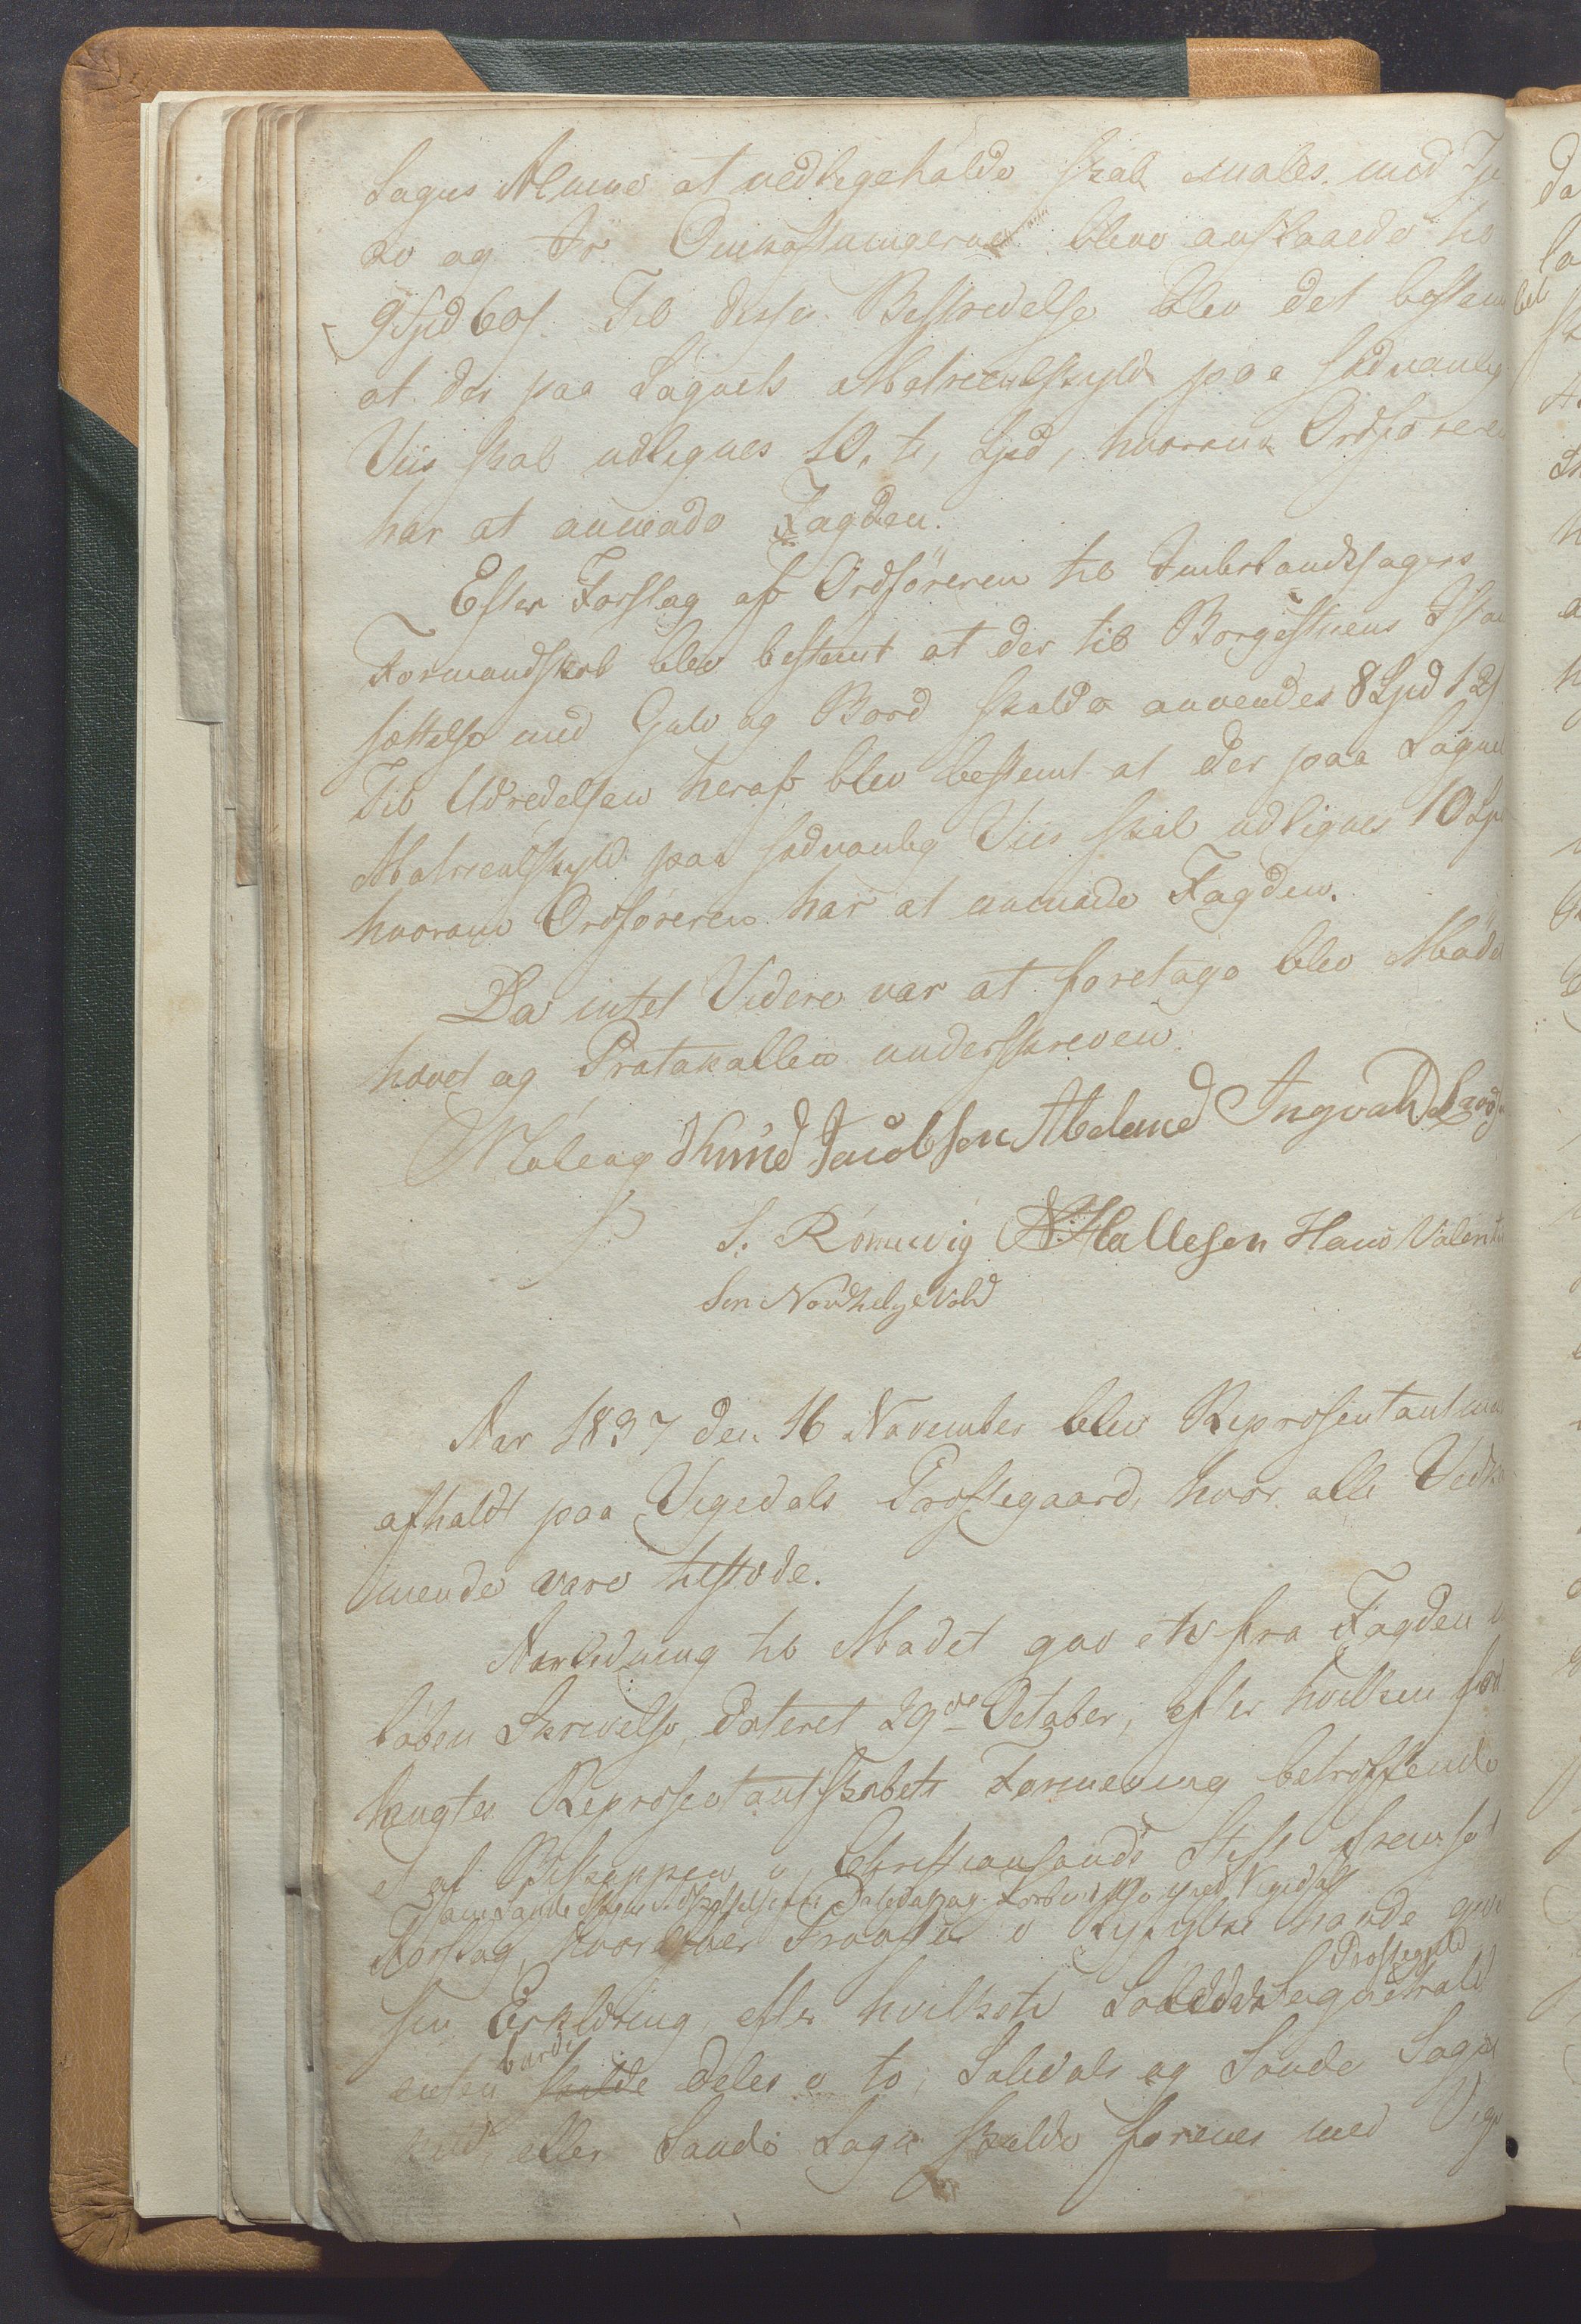 Sogns Almue at vedligeholde skal males med Tjæ
re og Omkostningerne bleve anslaaede til
9 Spd 60 s. Til disses Bestridelse blev det bestemt
at der paa Sognets Matriculskyld paa sædvanlig
Viis skal udlignes 10, ti, Spd, hvorom Ordføreren
har at anmode Fogden.
Efter Forslag af Ordføreren til Imslandssogns
Formandskab blev bestemt at der til Borgestuens Istand
sættelse med Gulv og Bord skulde anvendes 8 Spd 12 s
Til Udredelsen heraf blev bestemt at der paa Sognets
Matriculskyld paa sædvanlig Viis skal udlignes 10 Spd
hvorom Ordføreren har at anmode Fogden.
Da intet Videre var at foretage blev Mødet
hævet og Protokollen underskreven
Maleng Knud Jacobsen Abeland Ingvald
S. Rönnevig N. Hallesen Hans Valentin
sen Nordhelgevold
Aar 1837 den 16 November blev Representantmøde
afholdt paa Vigedals Præstegaard, hvor alle Vedkom
mende vare tilstæde.
Anledning til Mødet gav et fra Fogden ind
løben Skrivelse, dateret 29de October, efter hvilken for
langtes Representantskabets Formening betræffende
et af Biskoppen i Christiansands Stift fremsat
Sandesogns Adskillelse fra Saledals og Forbindelse med Vigedals
Forslag, hvorover Provsten i Ryfylke havde given
sin Erklæring, efter hvilket Saledals Præstegjeld
enten burde skulde deles i to, Saledals og Sands Sogne
kald, eller Sands Sogn skulde forenes med Vige